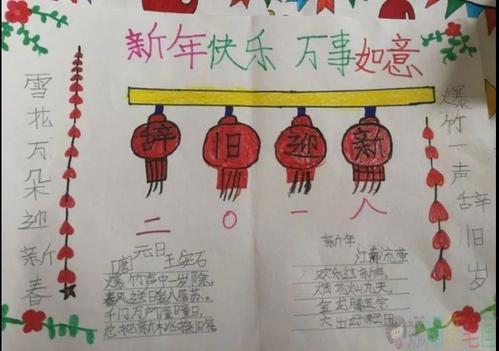 新年快乐 万事如意
爆竹一声辞旧岁
雪花万朵迎新春
辞旧迎新
二〇一八
元日
[唐] 王安石
爆竹声中一岁除,
春风送暖入屠苏。
千门万户曈曈日,
总把新桃换旧符
新年
欢乐过新年,